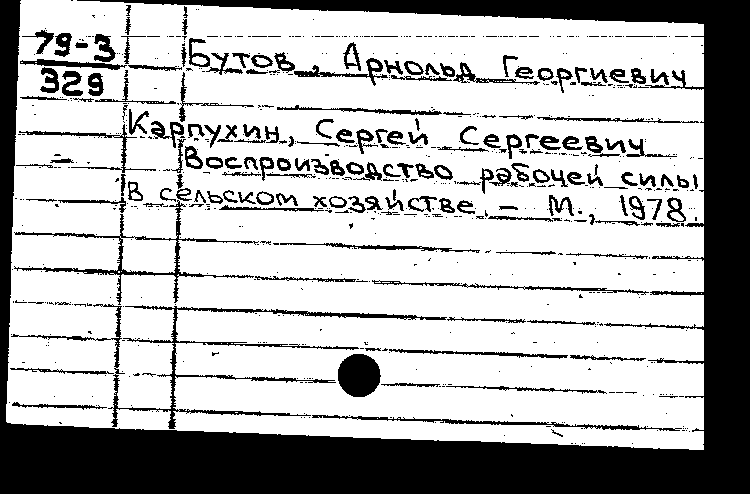 79-3
329
Бутов, Арнольд Георгиевич
Карпухин, Сергей Сергеевич
Воспроизводство рабочей силы
в сельском хозяйстве. - М., 1978.